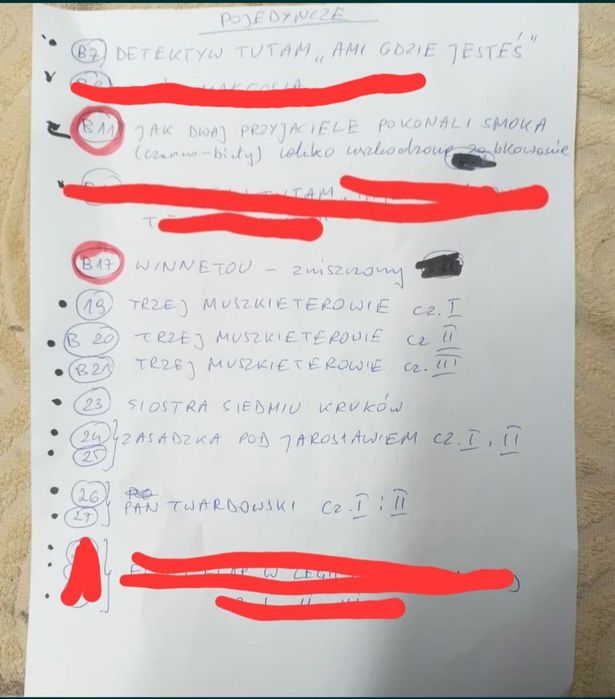 POJEDYNCZE
B7 DETEKTYW TUTAM „AMI GDZIE JESTEŚ"
B11 JAK DWAJ PRZYJACIELE POKONALI SMOKA
(czarno-biały) lekko uszkodzone ząbkowanie
TUTAM,
B17 WINNETOU - zniszczony
19 TRZEJ MUSZKIETEROWIE cz. I
B 20 TRZEJ MUSZKIETEROWIE cz II
B21 TRZEJ MUSZKIETEROWIE cz. III
23 SIOSTRA SIEDMIU KRUKÓW
24 ZASADZKA POD JAROSŁAWIEM CZ. I i II
25
26
27 PAN TWARDOWSKI CZ. I i II
W